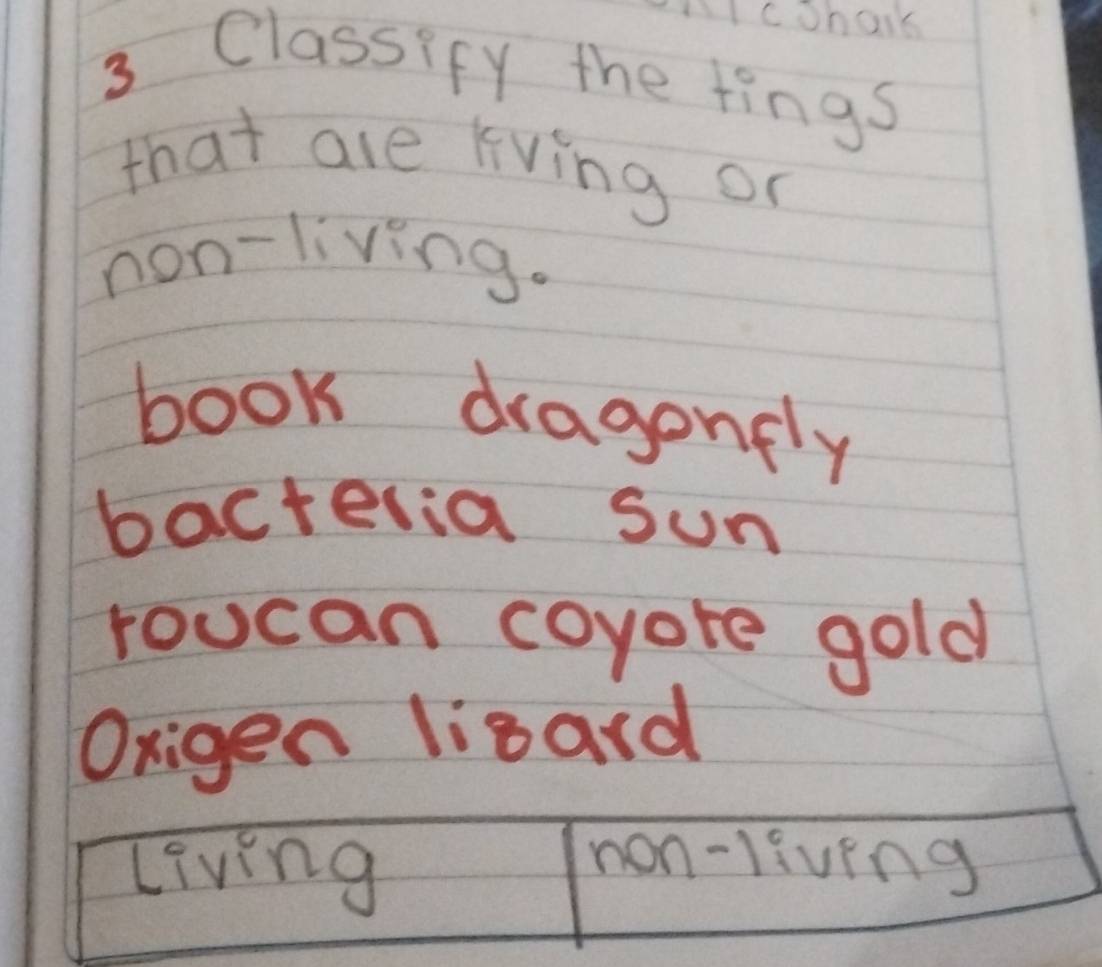 3 Classify the tings
that are living or
non-living.
book dragonfly
bacteria sun
toucan coyote gold
Oxigen lizard
Living non-living